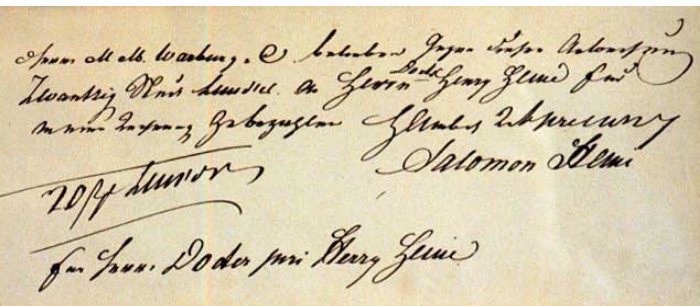 Herrn M M. Warburg. C belieben gegen diese Anweisung
Zwantzig Stück Louisd. an Herrn Doctr Henry Heine für
meine Rechnung zu bezahlen Hamburg
Salomon Heine
20 Louisdor
für Herrn Doctor Henry Heine